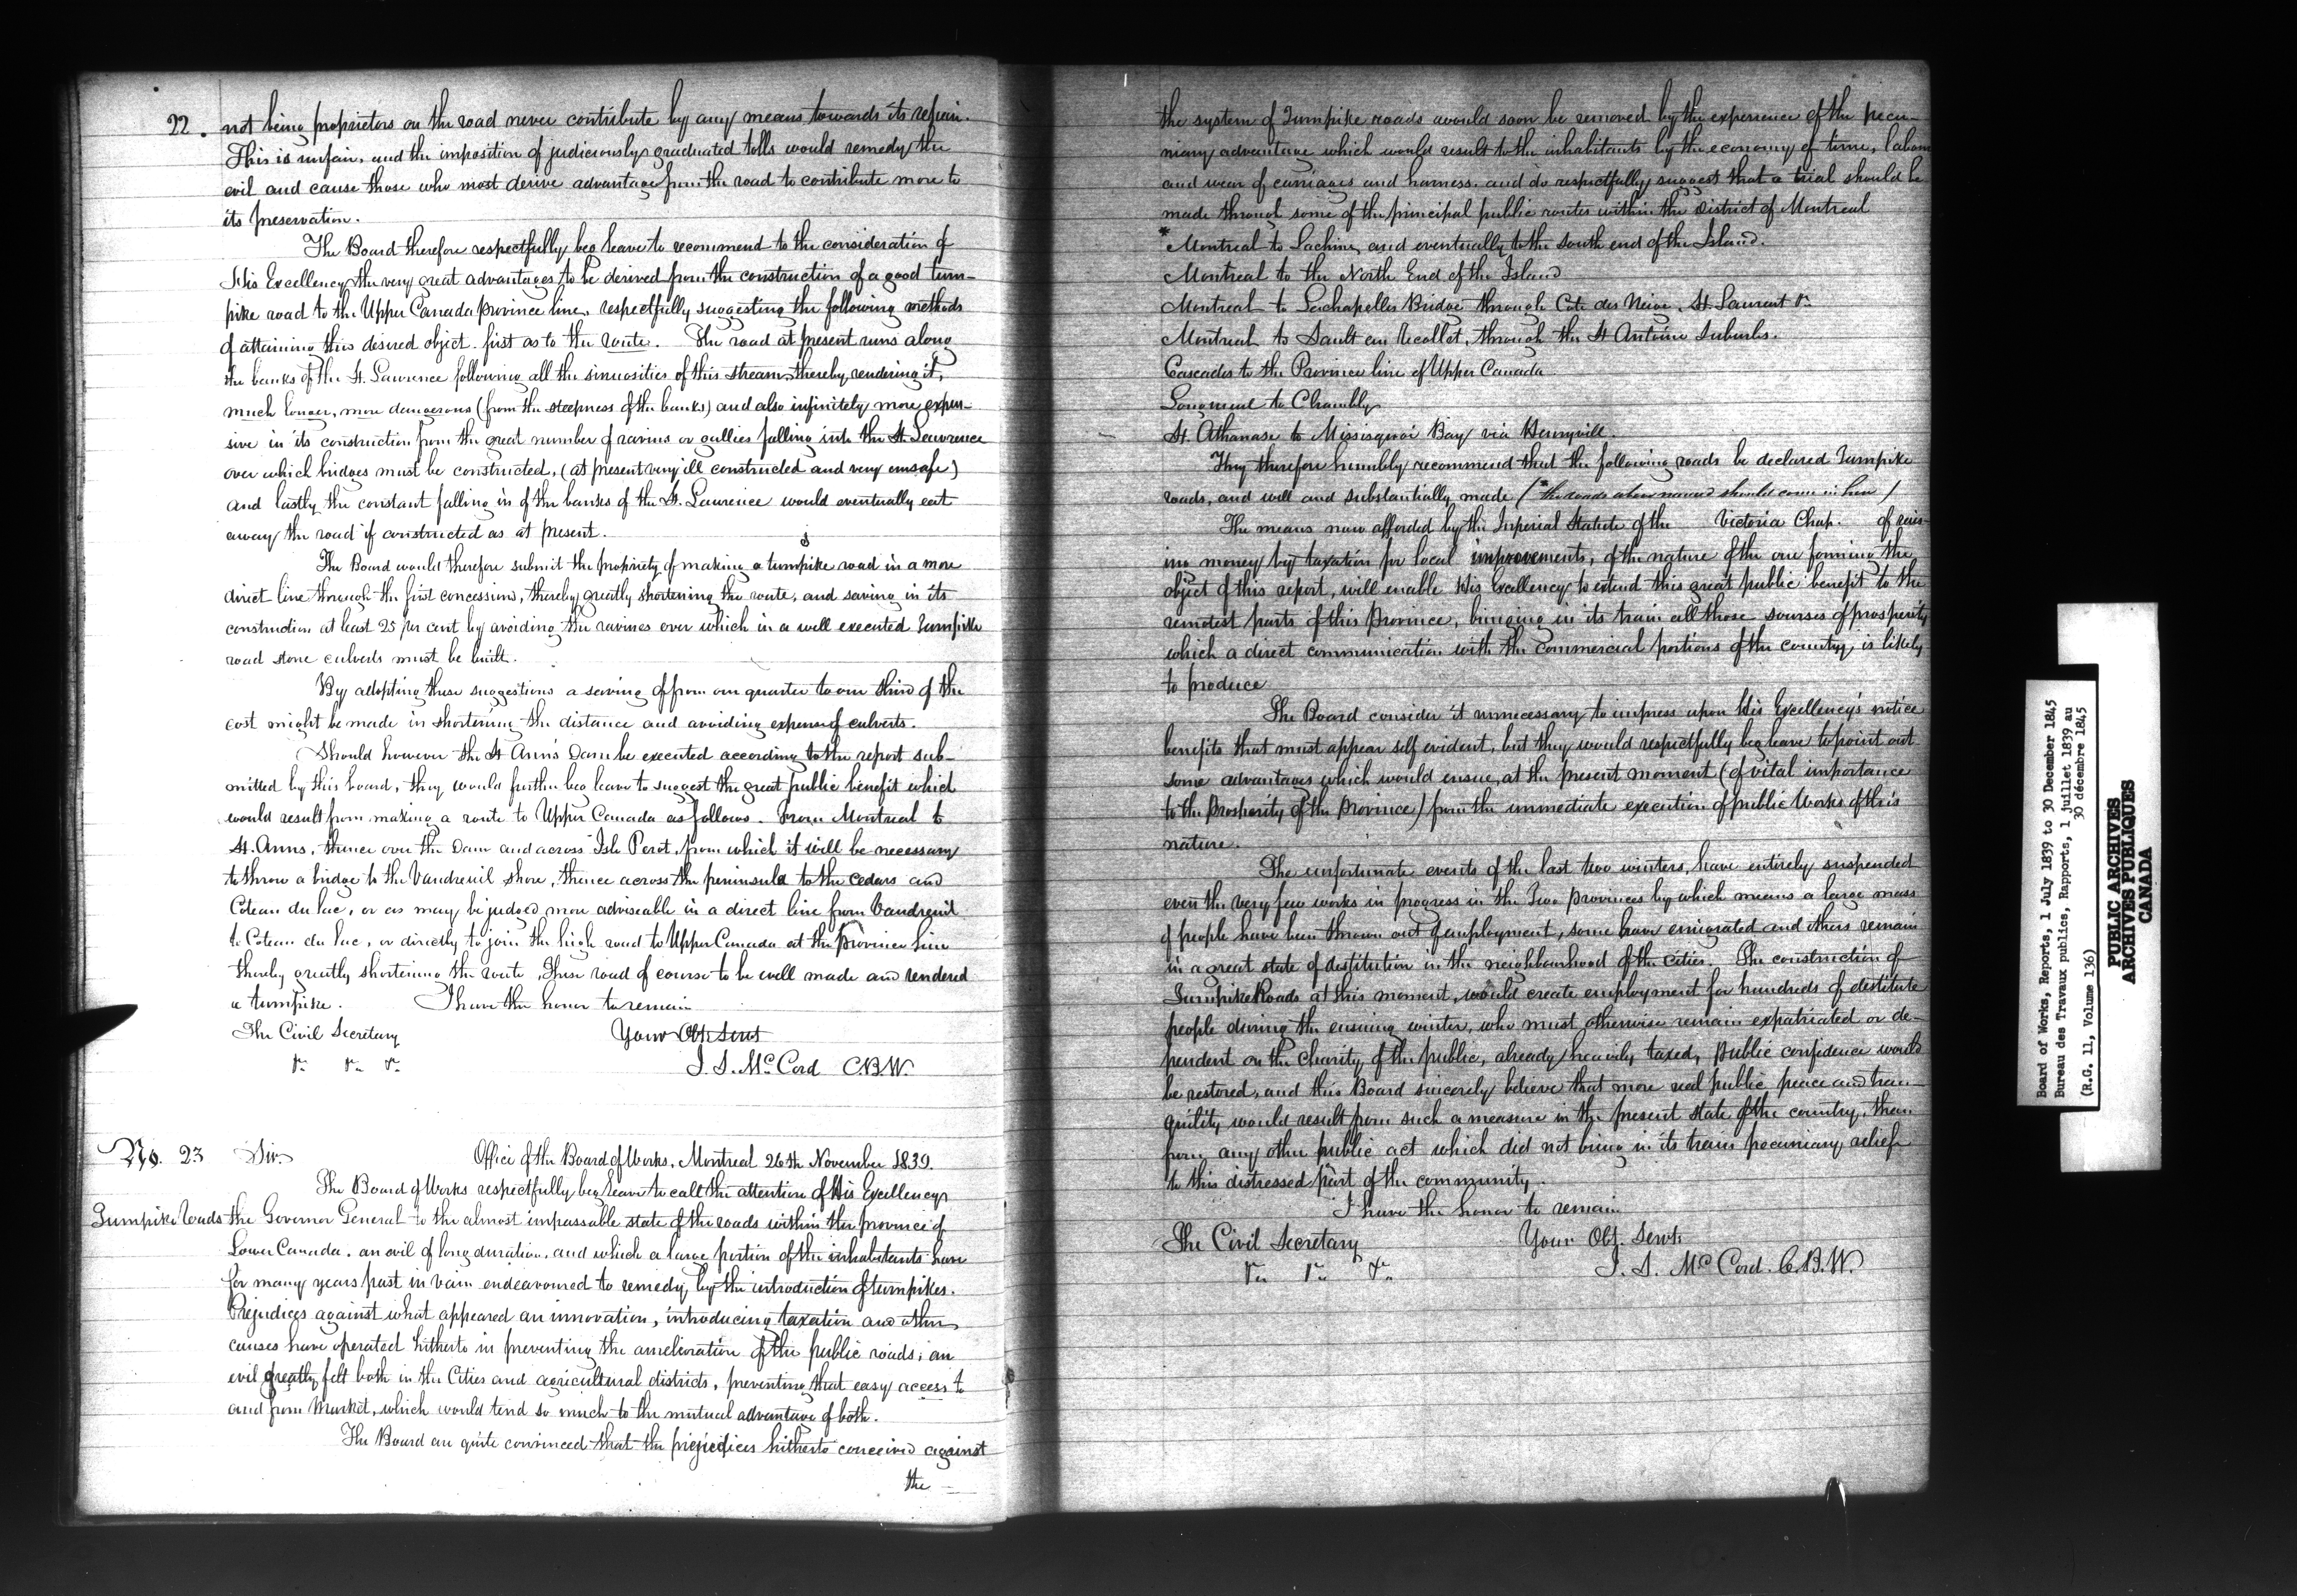 22. not being proprietors on the road never contribute by any means towards its repair.
This is unfair, and the imposition of judiciously graduated tolls would remedy the
evil and cause those who most derive advantage from the road to contribute more to
its preservation.
The Board therefore respectfully beg leave to recommend to the consideration of
His Excellency the very great advantages to be derived from the construction of a good turn-
pike road to the Upper Canada province line, respectfully suggesting the following methods
of attaining this desired object. first as to the route. The road at present runs along
the banks of the St. Lawrence following all the sinuosities of this stream thereby rendering it,
much longer, more dangerous (from the steepness of the banks) and also infinitely more expen-
sive in its construction from the great number of ravines or gullies falling into the St. Lawrence
over which bridges must be constructed, (at present very ill constructed and very unsafe)
and lastly the constant falling in of the banks of the St. Lawrence would eventually eat
away the road if constructed as at present.
The Board would therefore submit the propriety of making a turnpike road in a more
direct line through the first concessions, thereby greatly shortening the route, and saving in its
construction at least 25 per cent by avoiding the ravines over which in a well executed Turnpike
road stone culverts must be built.
By adopting these suggestions a saving of from one quarter to one third of the
cost might be made in shortening the distance and avoiding expense of culverts.
Should however the St Ann's Dam be executed according to the report sub-
mitted by this board, they would further beg leave to suggest the great public benefit which
would result from making a route to Upper Canada as follows. From Montreal to
St. Anns, thence over the Dam and across Isle Perot, from which it will be necessary
to throw a bridge to the Vaudreuil shore, thence across the peninsula to the Cedars and
Coteau du lac, or as may be judged more adviseable in a direct line from Vaudreuil
to Coteau du lac, or directly to join the high road to Upper Canada at the Province line
thereby greatly shortening the route, these road of course to be well made and rendered
a turnpike. I have the honor to remain
The Civil Secretary Your Obt. Servt
&c &c &c J. S. McCord C.B.W.
No. 23 Sir Office of the Board of Works, Montreal 26th November 1839.
The Board of Works respectfully beg leave to call the attention of His Excellency
Turnpike Roads the Governor General to the almost impassable state of the roads within the province of
Lower Canada. an evil of long duration, and which a large portion of the inhabitants have
for many years past in vain endeavoured to remedy, by the introduction of turnpikes.
Prejudices against what appeared an innovation, introducing taxation and other
causes have operated hitherto in preventing the amelioration of the public roads; an
evil greatly felt both in the Cities and agricultural districts, preventing that easy access to
and from Market, which would tend so much to the mutual advantage of both.
The Board are quite convinced that the prejudices hitherto conceived against
the
the system of Turnpike roads would soon be removed by the experience of the pecu-
niary advantage which would result to the inhabitants by the economy of time, labour
and wear of carriages and harness. and do respectfully suggest that a trial should be
made through some of the principal public routes within the District of Montreal
* Montreal to Lachine, and eventually to the South end of the Island.
Montreal to the North End of the Island
Montreal to Lachapelles Bridge through Cote des Neige, St. Laurent &c
Montreal to Sault au Recollet, through the St Antoine Suburbs.
Cascades to the Province line of Upper Canada
Longueuil to Chambly
St. Athanase to Missisquoi Bay via Henryvill.
They therefore humbly recommend that the following roads be declared Turnpike
roads, and well and substantially made (* the roads above named should come in here)
The means now afforded by the Imperial Statute of the Victoria Chap. of rais-
ing money by taxation for local improvements, of the nature of the one forming the
object of this report, will enable His Excellency to extend this great public benefit to the
remotest parts of this Province, bringing in its train all those sourses of prosperity
which a direct communication with the commercial portions of the country, is likely
to produce
The Board consider it unnecessary to impress upon His Excellency's notice
benefits that must appear self evident, but they would respectfully beg leave to point out
some advantages which would ensue, at the present moment (of vital importance
to the Prosperity of the Province) from the immediate execution of public Works of this
nature.
The unfortunate events of the last two winters, have entirely suspended
even the very few works in progress in the Two provinces by which means a large mass
of people have been thrown out of employment, some have emigrated and others remain
in a great state of destitution in the neighbourhood of the cities. The construction of
Turnpike Roads at this moment, would create employment for hundreds of destitute
people during the ensuing winter, who must otherwise remain expatriated or de-
pendent on the Charity of the public, already heavily taxed, Public confidence would
be restored, and this Board sincerely believe that more real public peace and tran-
quility would result from such a measure in the present state of the country, than
from any other public act which did not bring in its train pecuniary relief
to this distressed part of the community.
I have the honor to remain
The Civil Secretary Your Obt. Servt.
&c &c &c J. S. McCord. C.B.W.
Board of Works, Reports, 1 July 1839 to 30 December 1845
Bureau des Travaux publics, Rapports, 1 juillet 1839 au
30 décembre 1845
(R.G. 11, Volume 136)
PUBLIC ARCHIVES
ARCHIVES PUBLIQUES
CANADA